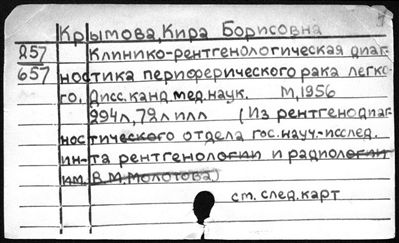 Крымова, Кира Борисовна
257 Клинико-рентгенологическая диаг-
657 ностика периферического рака легко-
го. Дисс. канд. мед. наук. М., 1956
294л, 79л илл (Из рентгенодиаг-
ностического отдела гос. науч.-исслед.
ин-та рентгенологии и радиологии
им. В.М. Молотова)
см. след. карт